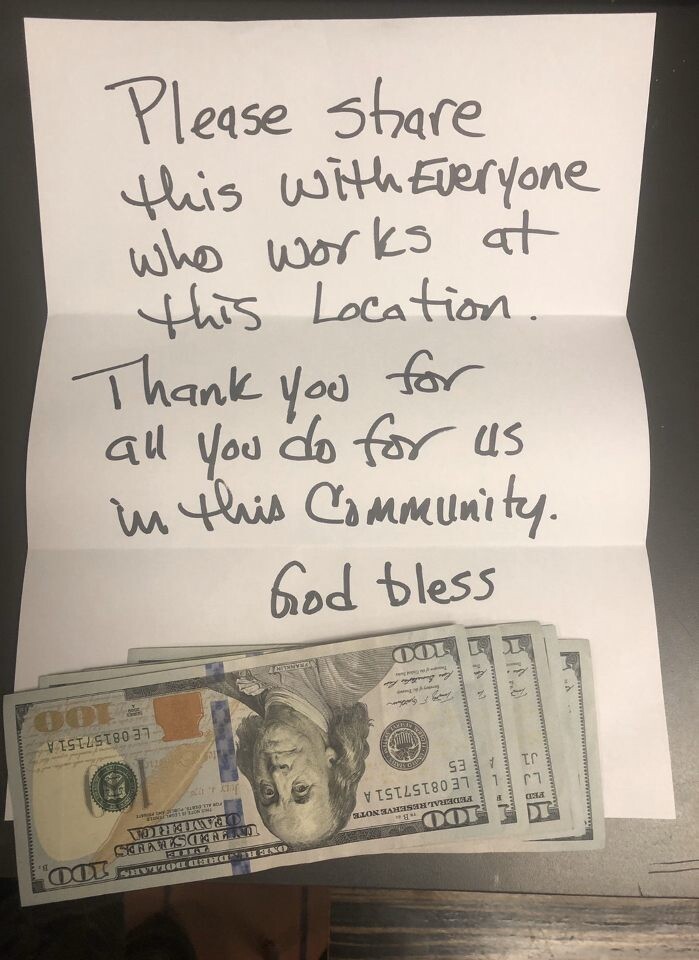 Please share
this with Everyone
who works at
this Location.
Thank you for
all you do for us
in this Community.
God bless
100
FRANKLIN
LE 08157151 A
LE 08157151 A
E5
FEDERAL RESERVE NOTE
THE
UNITED STATES
OF AMERICA
ONE HUNDRED DOLLARS
100
100
LJ
J1